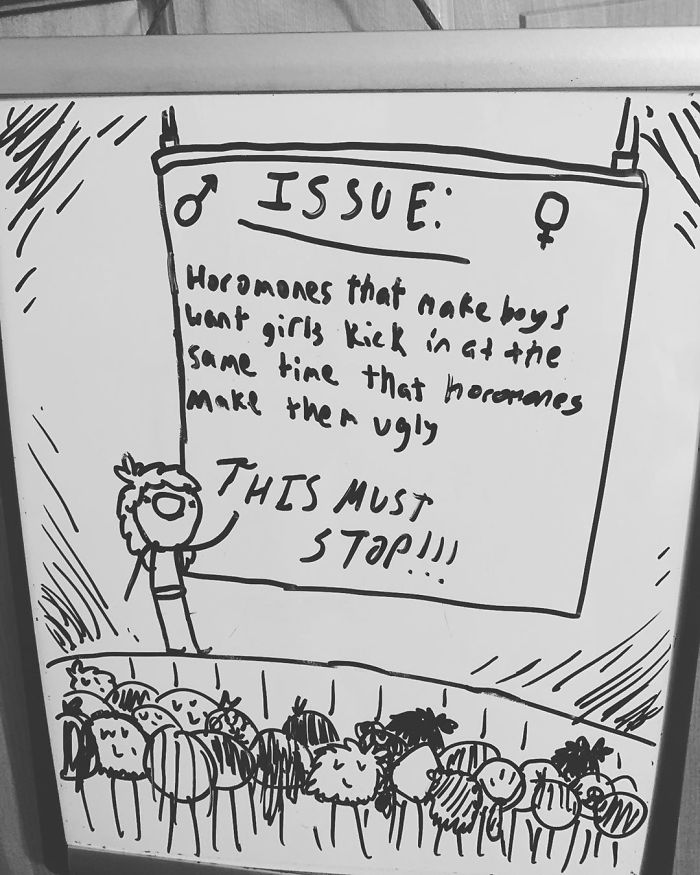 ISSUE:
Horomones that make boys
want girls kick in at the
same time that horomones
make them ugly
THIS MUST
STOP!!!